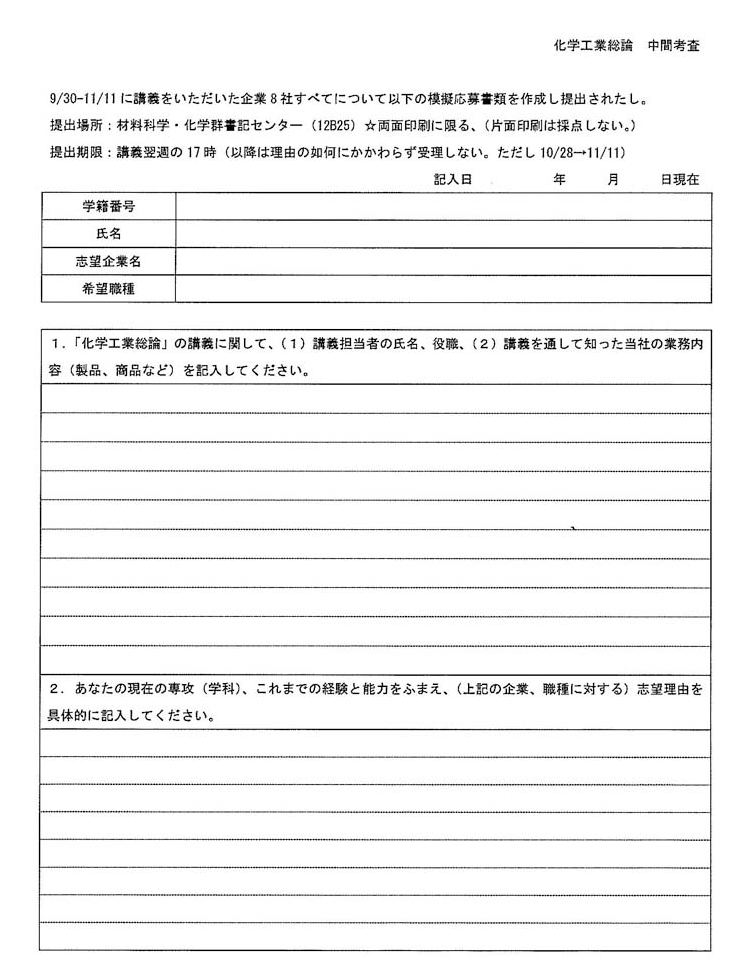 化学工業総論　中間考査
9/30-11/11に講義をいただいた企業8社すべてについて以下の模擬応募書類を作成し提出されたし。
提出場所：材料科学・化学群書記センター（12B25）☆両面印刷に限る、（片面印刷は採点しない。）
提出期限：講義翌週の17時（以降は理由の如何にかかわらず受理しない。ただし10/28→11/11）
記入日　　　年　　月　　日現在
学籍番号
氏名
志望企業名
希望職種
1．「化学工業総論」の講義に関して、（1）講義担当者の氏名、役職、（2）講義を通して知った当社の業務内
容（製品、商品など）を記入してください。
2．あなたの現在の専攻（学科）、これまでの経験と能力をふまえ、（上記の企業、職種に対する）志望理由を
具体的に記入してください。